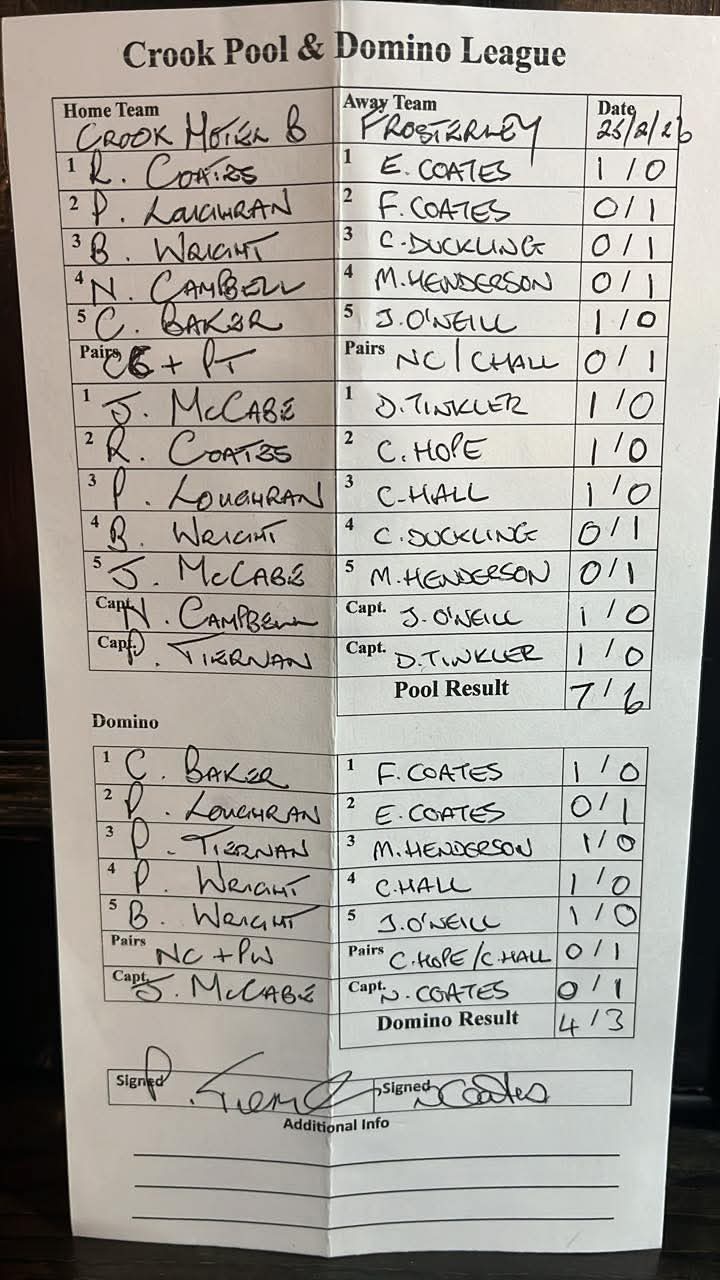 Crook Pool & Domino League
Home Team Away Team Date
CROOK MOTEL B FROSTERLEY 25/2/26
1 R. COATES 1 E. COATES 1 / 0
2 P. LOUGHRAN 2 F. COATES 0 / 1
3 B. WRIGHT 3 C. DUCKLING 0 / 1
4 N. CAMPBELL 4 M. HENDERSON 0 / 1
5 C. BAKER 5 J. O'NEILL 1 / 0
Pairs + PT Pairs NC / C HALL 0 / 1
1 J. McCABE 1 D. TINKLER 1 / 0
2 R. COATES 2 C. HOPE 1 / 0
3 P. LOUGHRAN 3 C. HALL 1 / 0
4 B. WRIGHT 4 C. DUCKLING 0 / 1
5 J. McCABE 5 M. HENDERSON 0 / 1
Capt. N. CAMPBELL Capt. J. O'NEILL 1 / 0
Capt. P. TIERNAN Capt. D. TINKLER 1 / 0
Pool Result 7 / 6
Domino
1 C. BAKER 1 F. COATES 1 / 0
2 P. LOUGHRAN 2 E. COATES 0 / 1
3 P. TIERNAN 3 M. HENDERSON 1 / 0
4 P. WRIGHT 4 C. HALL 1 / 0
5 B. WRIGHT 5 J. O'NEILL 1 / 0
Pairs NC + PW Pairs C. HOPE / C. HALL 0 / 1
Capt. J. McCABE Capt. N. COATES 0 / 1
Domino Result 4 / 3
Signed P. Tiernan Signed N Coates
Additional Info